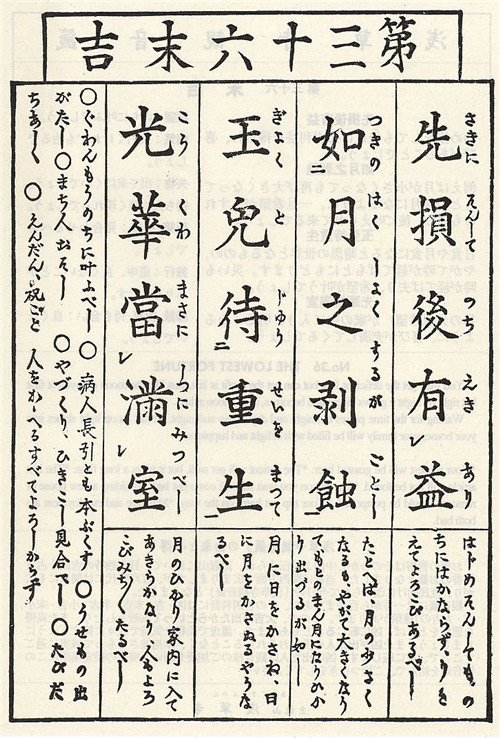 第三十六末吉
先損後有益
さきに そんして のち えき あり
はじめそんしてもの
ちにはかならずりを
えてよろこびあるべし
如月之剥蝕
つきの はくしよくするが ごとし
たとへば、月のちさく
なるも、やがて大きくなり
てもとのまん月になりひか
り出づるが如し
玉兎待重生
ぎよくと じゆうせいを まつて
月に日をかさね、日
に月をかさぬるやうな
るべし
光華當滿室
こうくわ まさに しつにみつべし
月のひかり家内に入て
あきらかなり、人もよろ
こびみち〱たるべし
〇ぐわんもうのちに叶ふべし 〇病人長引とも本ぷくす 〇うせもの出
がたし 〇まち人出そし 〇やづくり、ひきこし見合べし 〇たびだ
ちあしく 〇えんだん、祝ごと 人をかゝへるすべてよろしからず